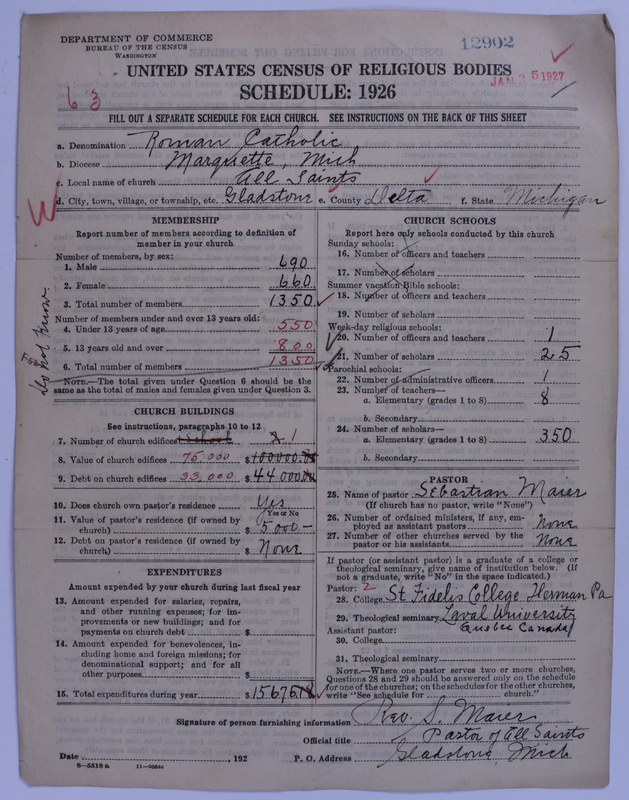 DEPARTMENT OF COMMERCE
BUREAU OF THE CENSUS
WASHINGTON
12902
UNITED STATES CENSUS OF RELIGIOUS BODIES
JAN 25 1927
63
SCHEDULE: 1926
FILL OUT A SEPARATE SCHEDULE FOR EACH CHURCH. SEE INSTRUCTIONS ON THE BACK OF THIS SHEET
a. Denomination Roman Catholic
b. Diocese Marquette, Mich
c. Local name of church All Saints
d. City, town, village, or township, etc. Gladstone e. County Delta f. State Michigan
W
MEMBERSHIP
Report number of members according to definition of
member in your church
Number of members, by sex:
1. Male 690
2. Female 660
3. Total number of members 1350
Number of members under and over 13 years old:
4. Under 13 years of age 550
5. 13 years old and over 800
6. Total number of members 1350
Do not know.
Est
NOTE.—The total given under Question 6 should be the
same as the total of males and females given under Question 3.
CHURCH BUILDINGS
See instructions, paragraphs 10 to 12
7. Number of church edifices 1 school 2 1
8. Value of church edifices 75,000 $ 100000.00
9. Debt on church edifices 33,000 $ 44000.00
10. Does church own pastor's residence Yes
(Yes or No
11. Value of pastor's residence (if owned by
church) $ 5000 —
12. Debt on pastor's residence (if owned by
church) $ None
EXPENDITURES
Amount expended by your church during last fiscal year
13. Amount expended for salaries, repairs,
and other running expenses; for im-
provements or new buildings; and for
payments on church debt $
14. Amount expended for benevolences, in-
cluding home and foreign missions; for
denominational support; and for all
other purposes $
15. Total expenditures during year $ 15676.78
CHURCH SCHOOLS
Report here only schools conducted by this church
Sunday schools:
16. Number of officers and teachers
17. Number of scholars
Summer vacation Bible schools:
18. Number of officers and teachers
19. Number of scholars
Week-day religious schools:
20. Number of officers and teachers 1
21. Number of scholars 25
Parochial schools:
22. Number of administrative officers 1
23. Number of teachers—
a. Elementary (grades 1 to 8) 8
b. Secondary
24. Number of scholars—
a. Elementary (grades 1 to 8) 350
b. Secondary
PASTOR
25. Name of pastor Sebastian Maier
(If church has no pastor, write "None")
26. Number of ordained ministers, if any, em-
ployed as assistant pastors None
27. Number of other churches served by the
pastor or his assistants None
If pastor (or assistant pastor) is a graduate of a college or
theological seminary, give name of institution below. (If
not a graduate, write "No" in the space indicated.)
Pastor: 2
28. College St Fidelis College Herman Pa
29. Theological seminary Laval University
Assistant pastor: Quebec Canada
30. College
31. Theological seminary
NOTE.—Where one pastor serves two or more churches,
Questions 28 and 29 should be answered only on the schedule
for one of the churches; on the schedules for the other churches,
write "See schedule for church."
Signature of person furnishing information Rev. S. Maier
Official title Pastor of All Saints
Date , 192 P. O. Address Gladstone, Mich
8—5518a